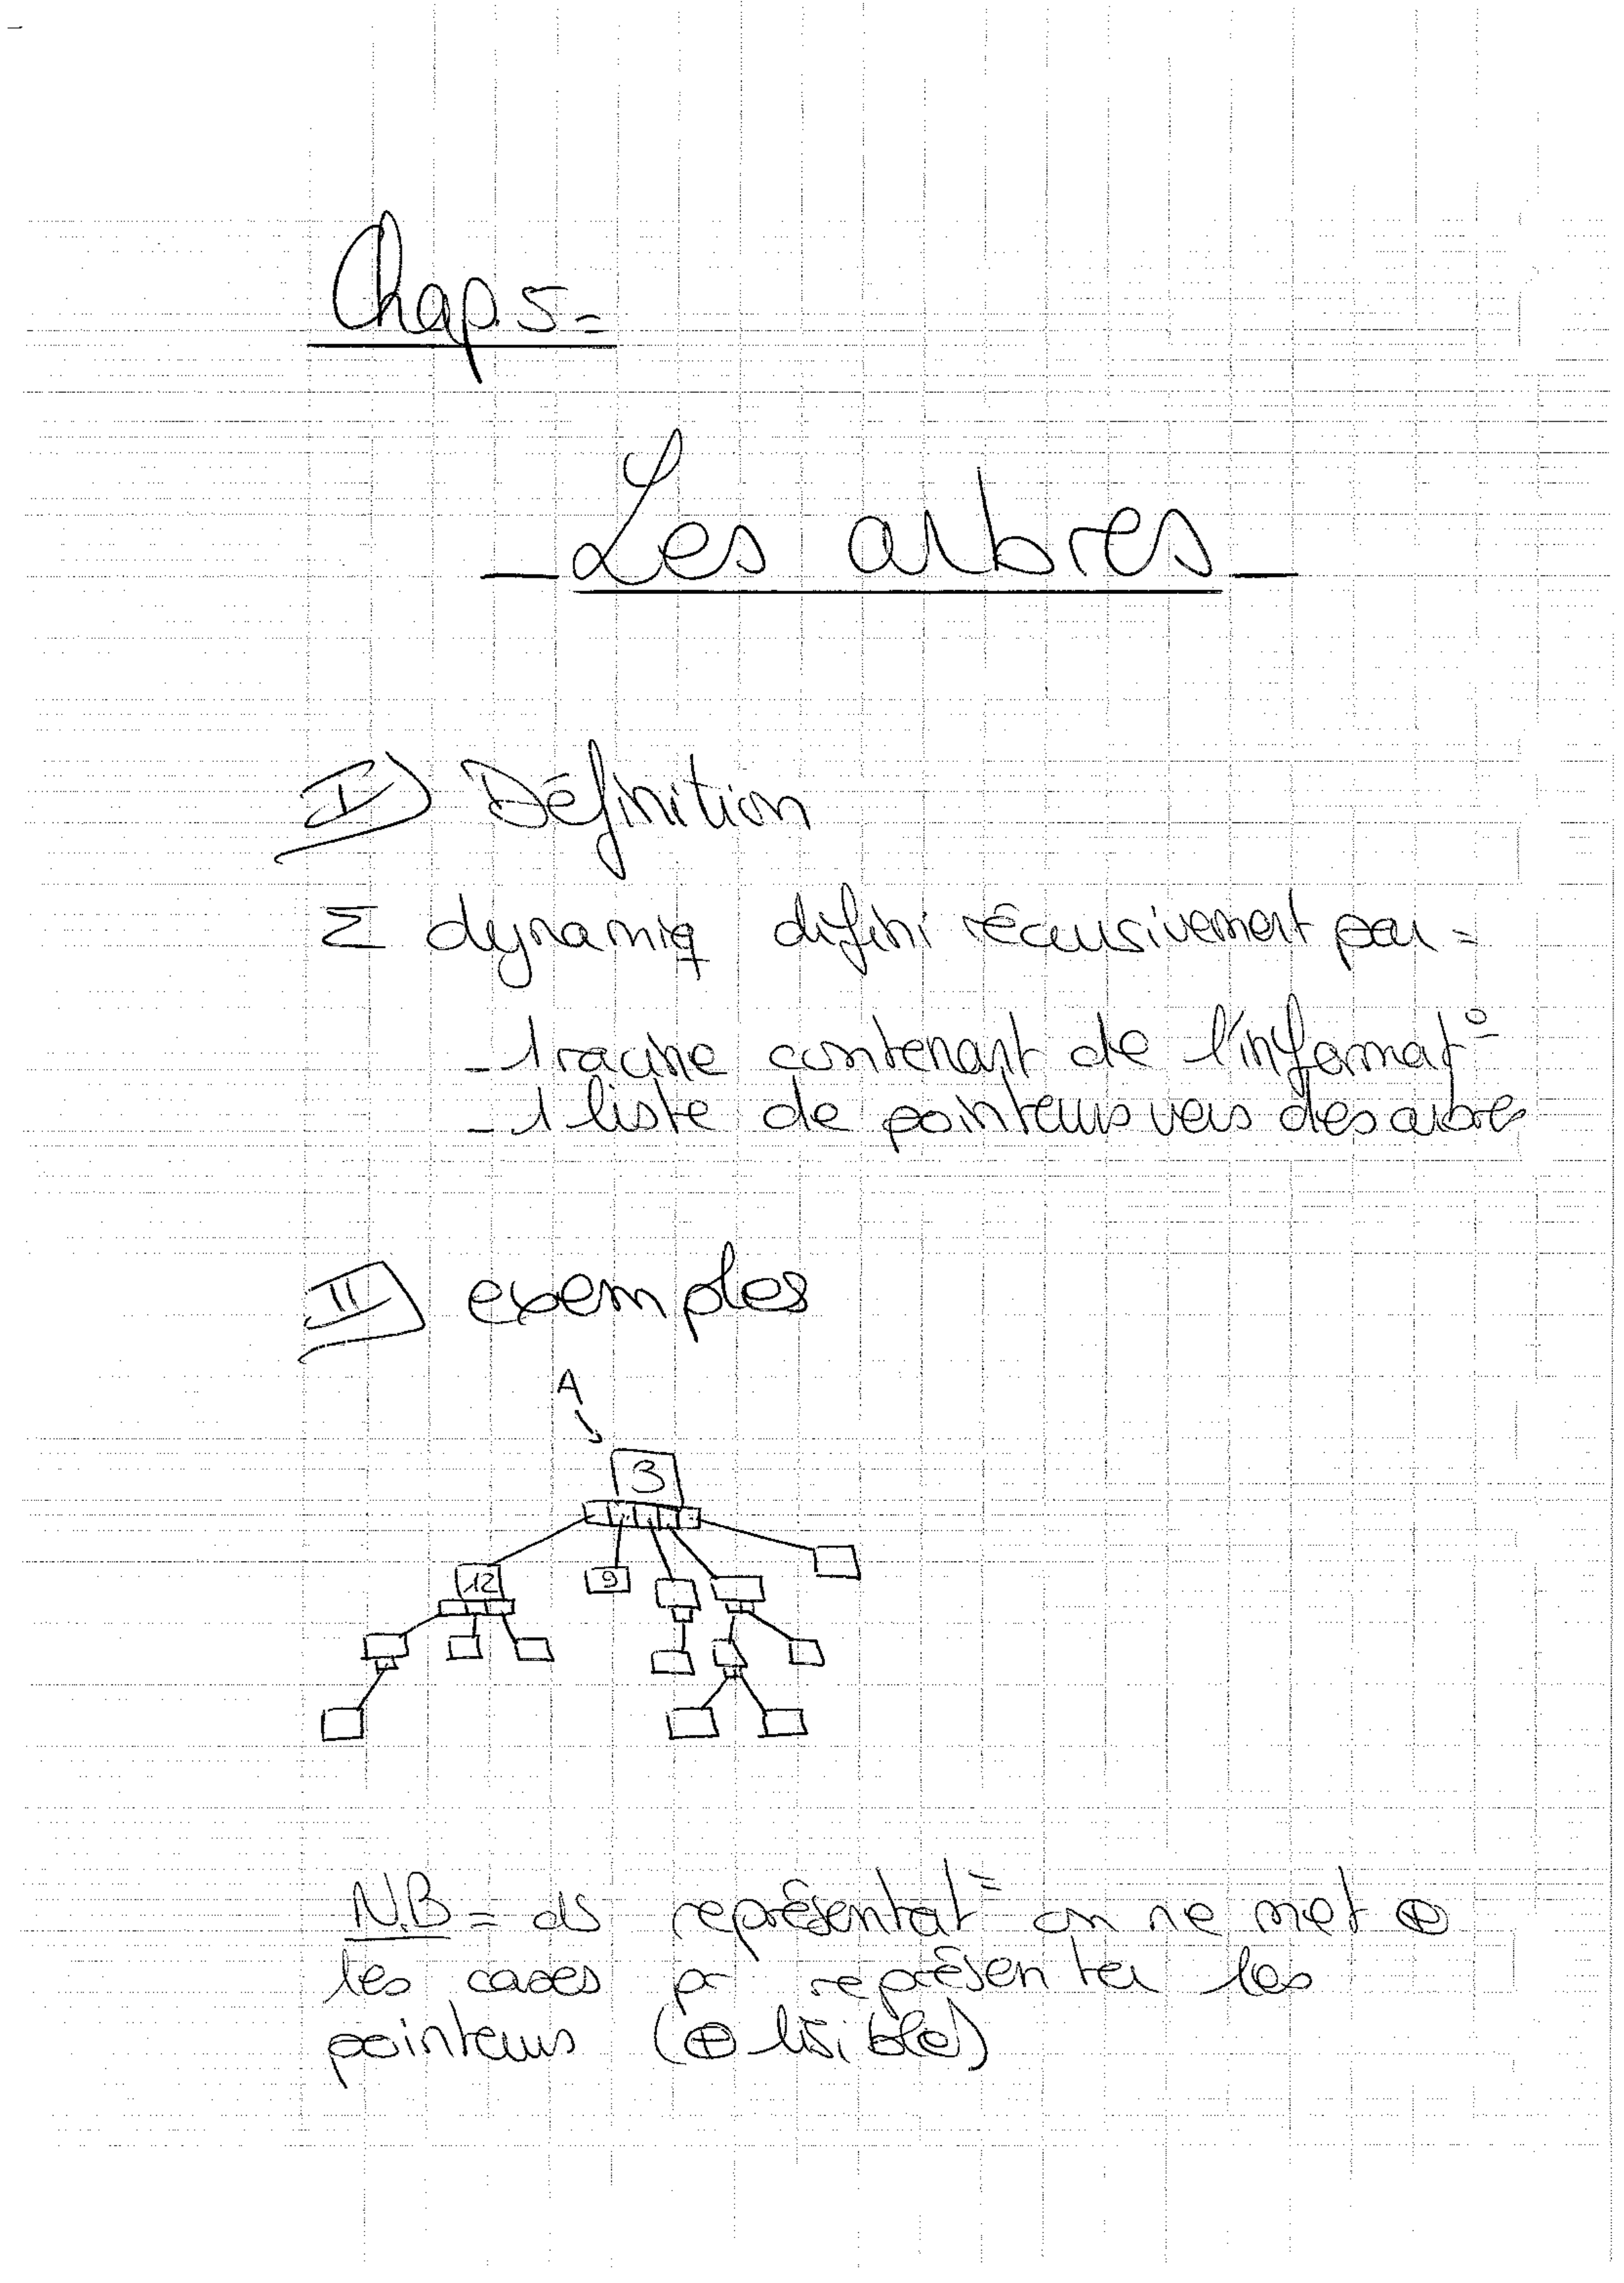 Chap.5=
Les arbres
I) Définition
Σ dynamiq défini récursivement par =
- 1 racine contenant de l'informat°
- 1 liste de pointeurs vers des arbres
II) exemples
A
3
12
9
N.B = ds représentat° on ne met ⊕
les cases pr représenter les
pointeurs (⊕ lisible)